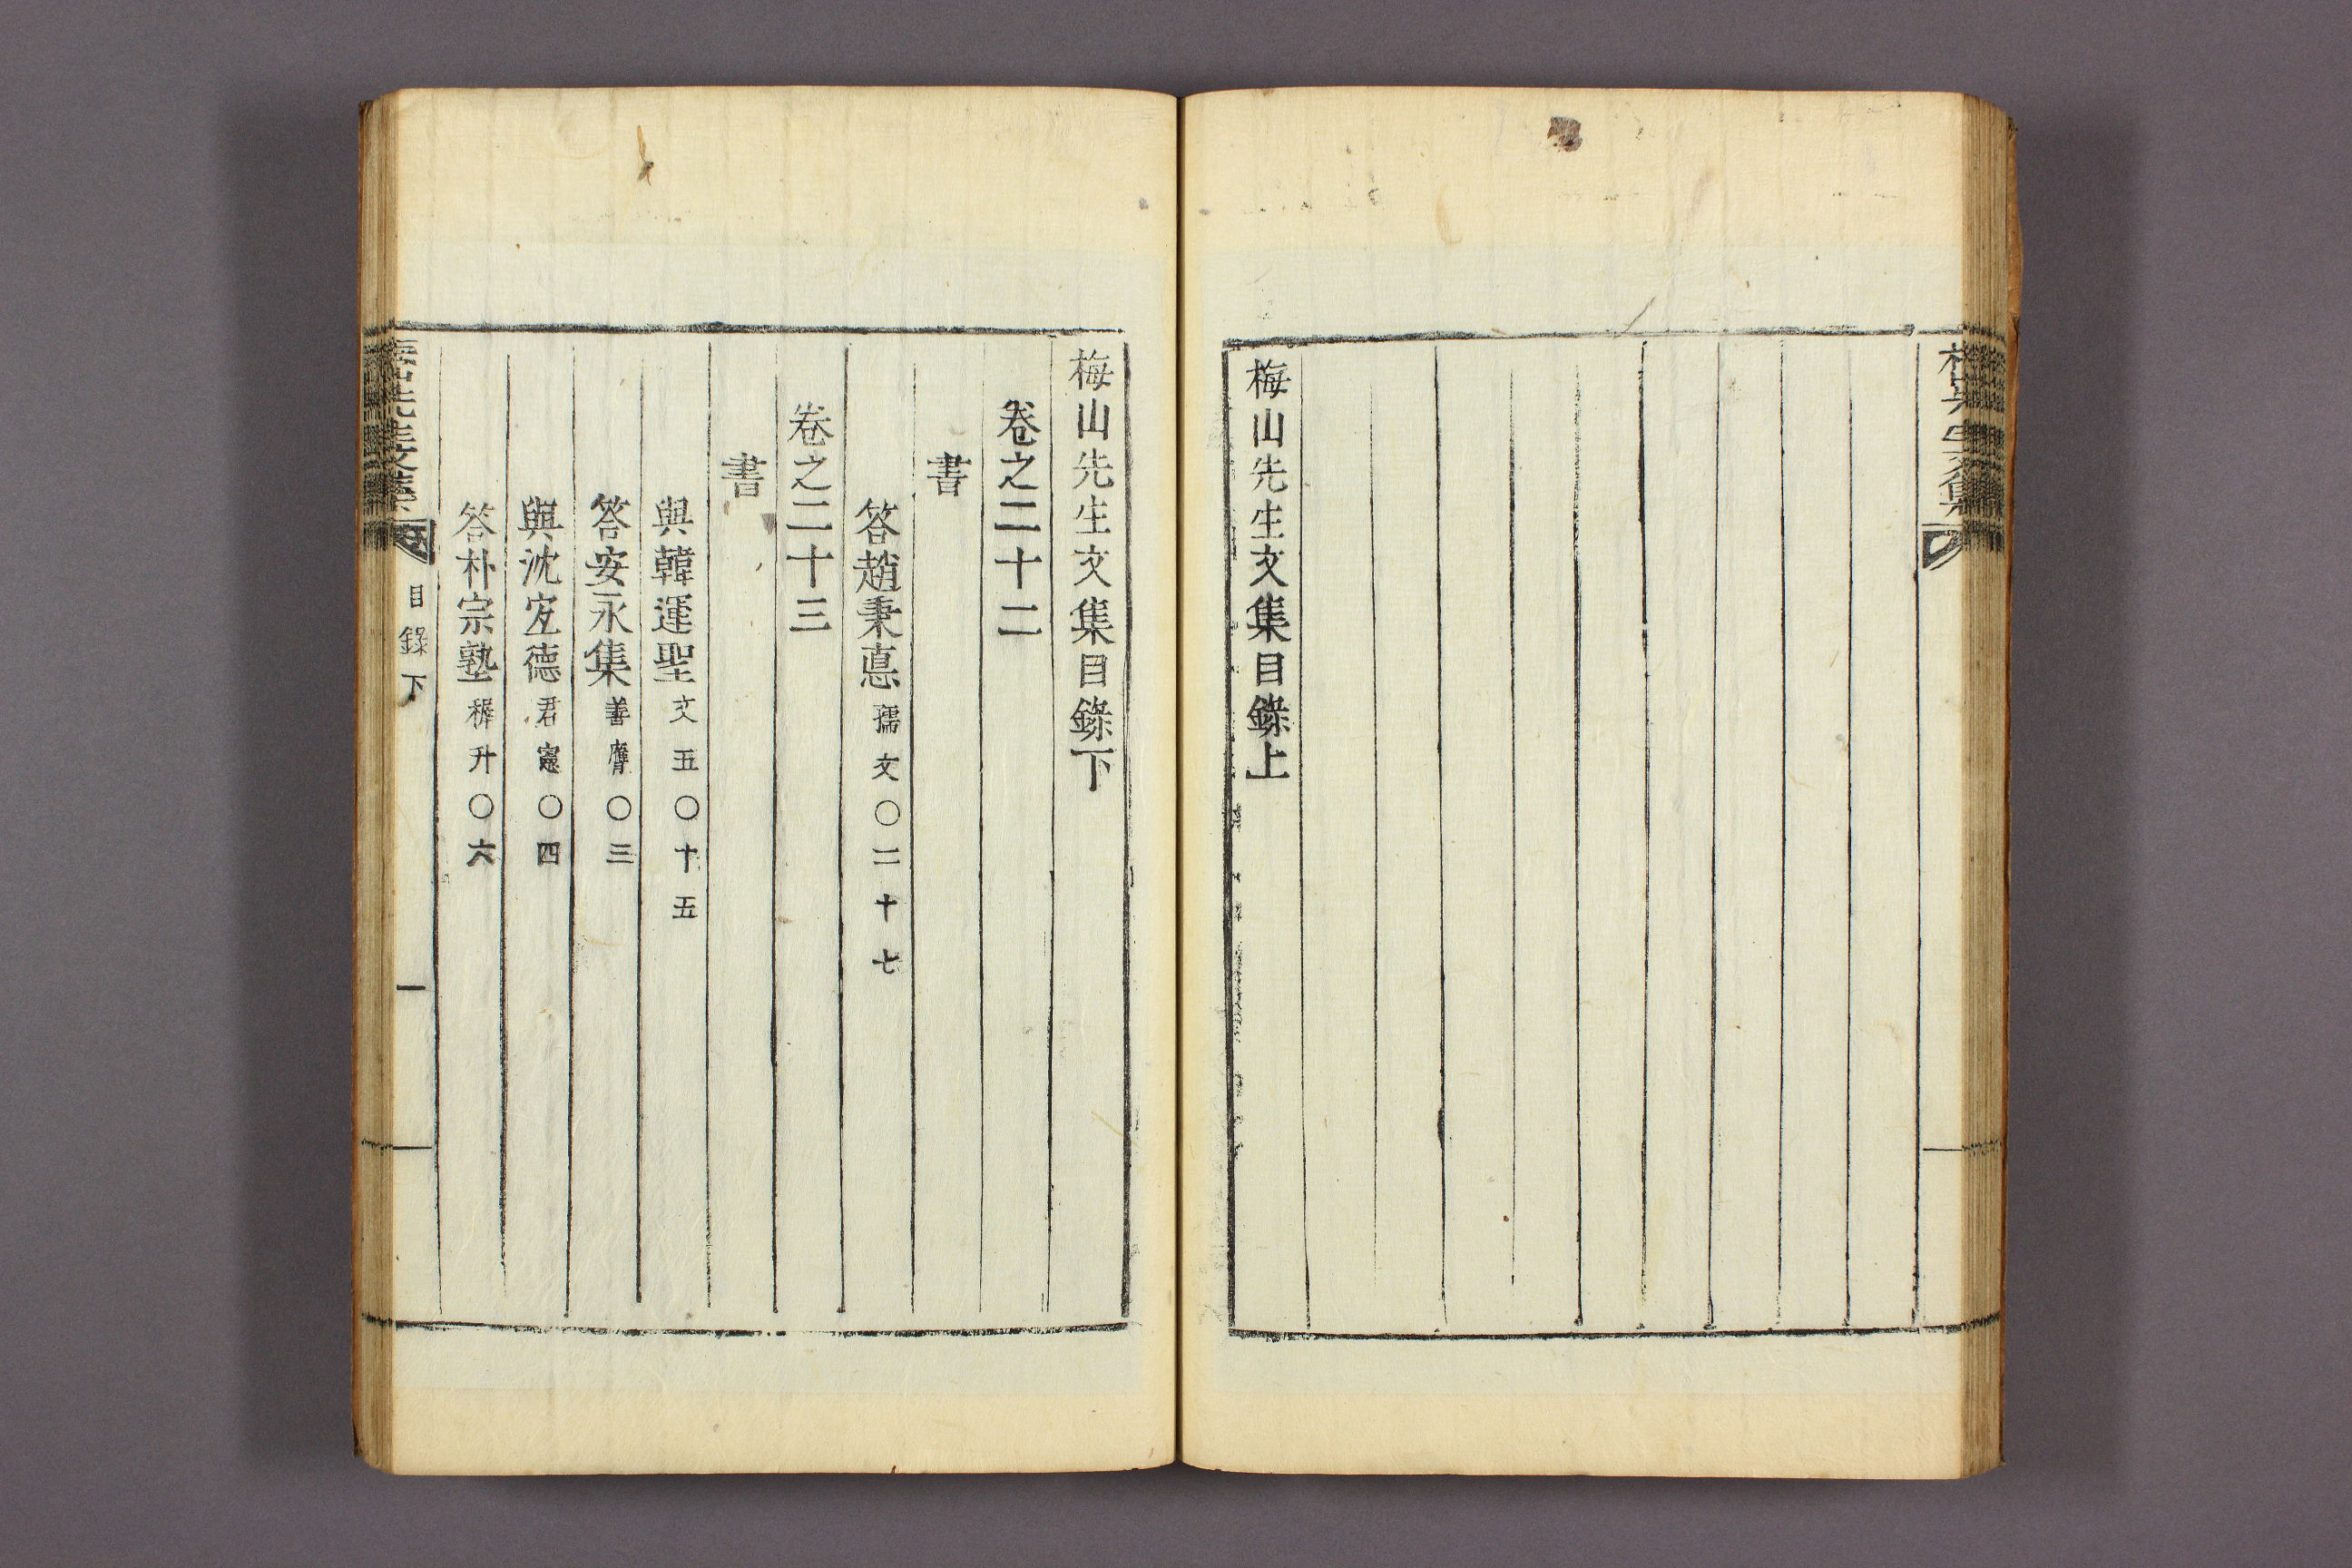 梅山先生文集目錄上
梅山先生文集目錄下
卷之二十二
書
答趙秉悳孺文○二十七
卷之二十三
書
與韓運聖文五○十五
答安永集善膺○三
與沈宜德君憲○四
答朴宗塾穉升○六
目錄下
一